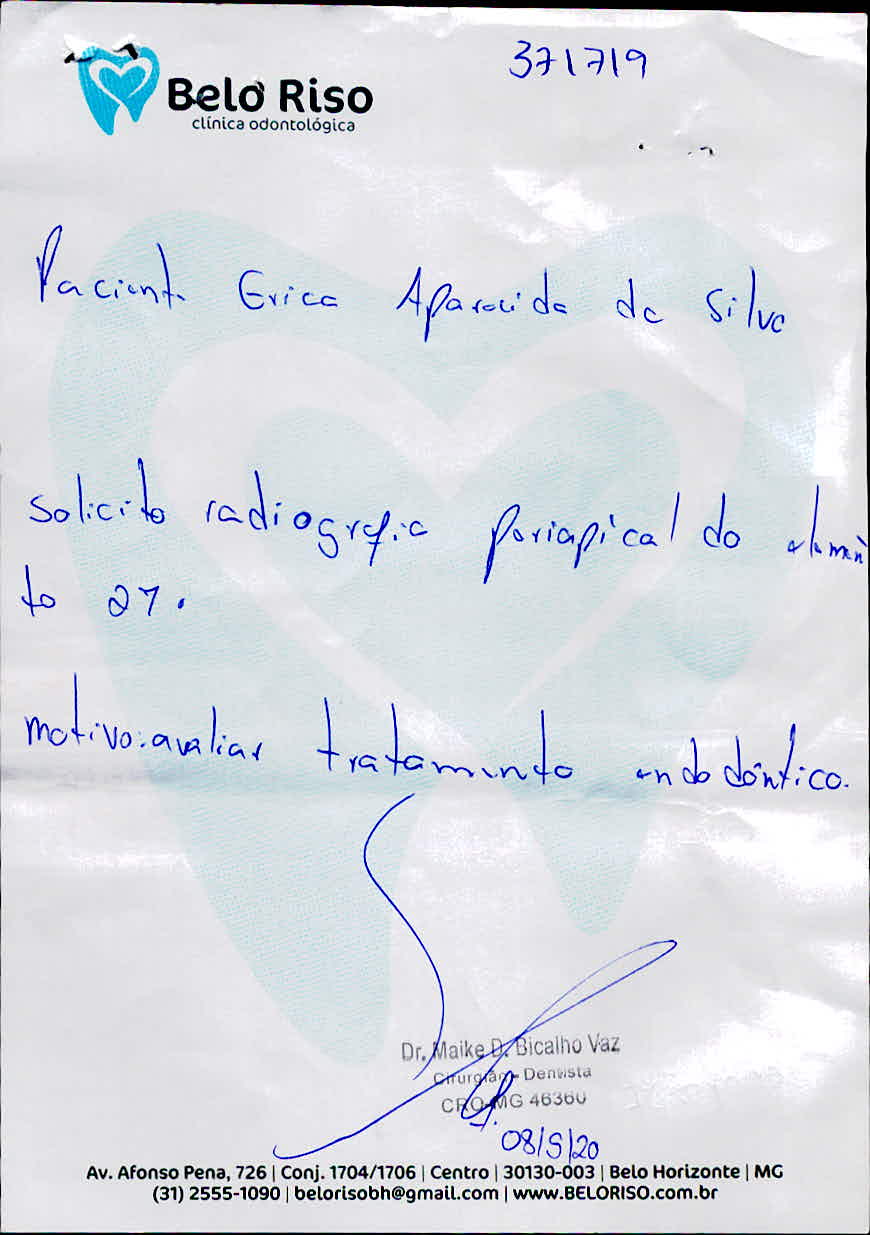 371719
Belo Riso
clínica odontológica
Paciente Erica Aparecida da Silva
solicito radiografia periapical do elemen
to 27.
motivo: avaliar tratamento endodôntico.
Dr. Maike D. Bicalho Vaz
Cirurgião - Dentista
CRO-MG 46360
08/9/20
Av. Afonso Pena, 726 | Conj. 1704/1706 | Centro | 30130-003 | Belo Horizonte | MG
(31) 2555-1090 | belorisobh@gmail.com | www.BELORISO.com.br